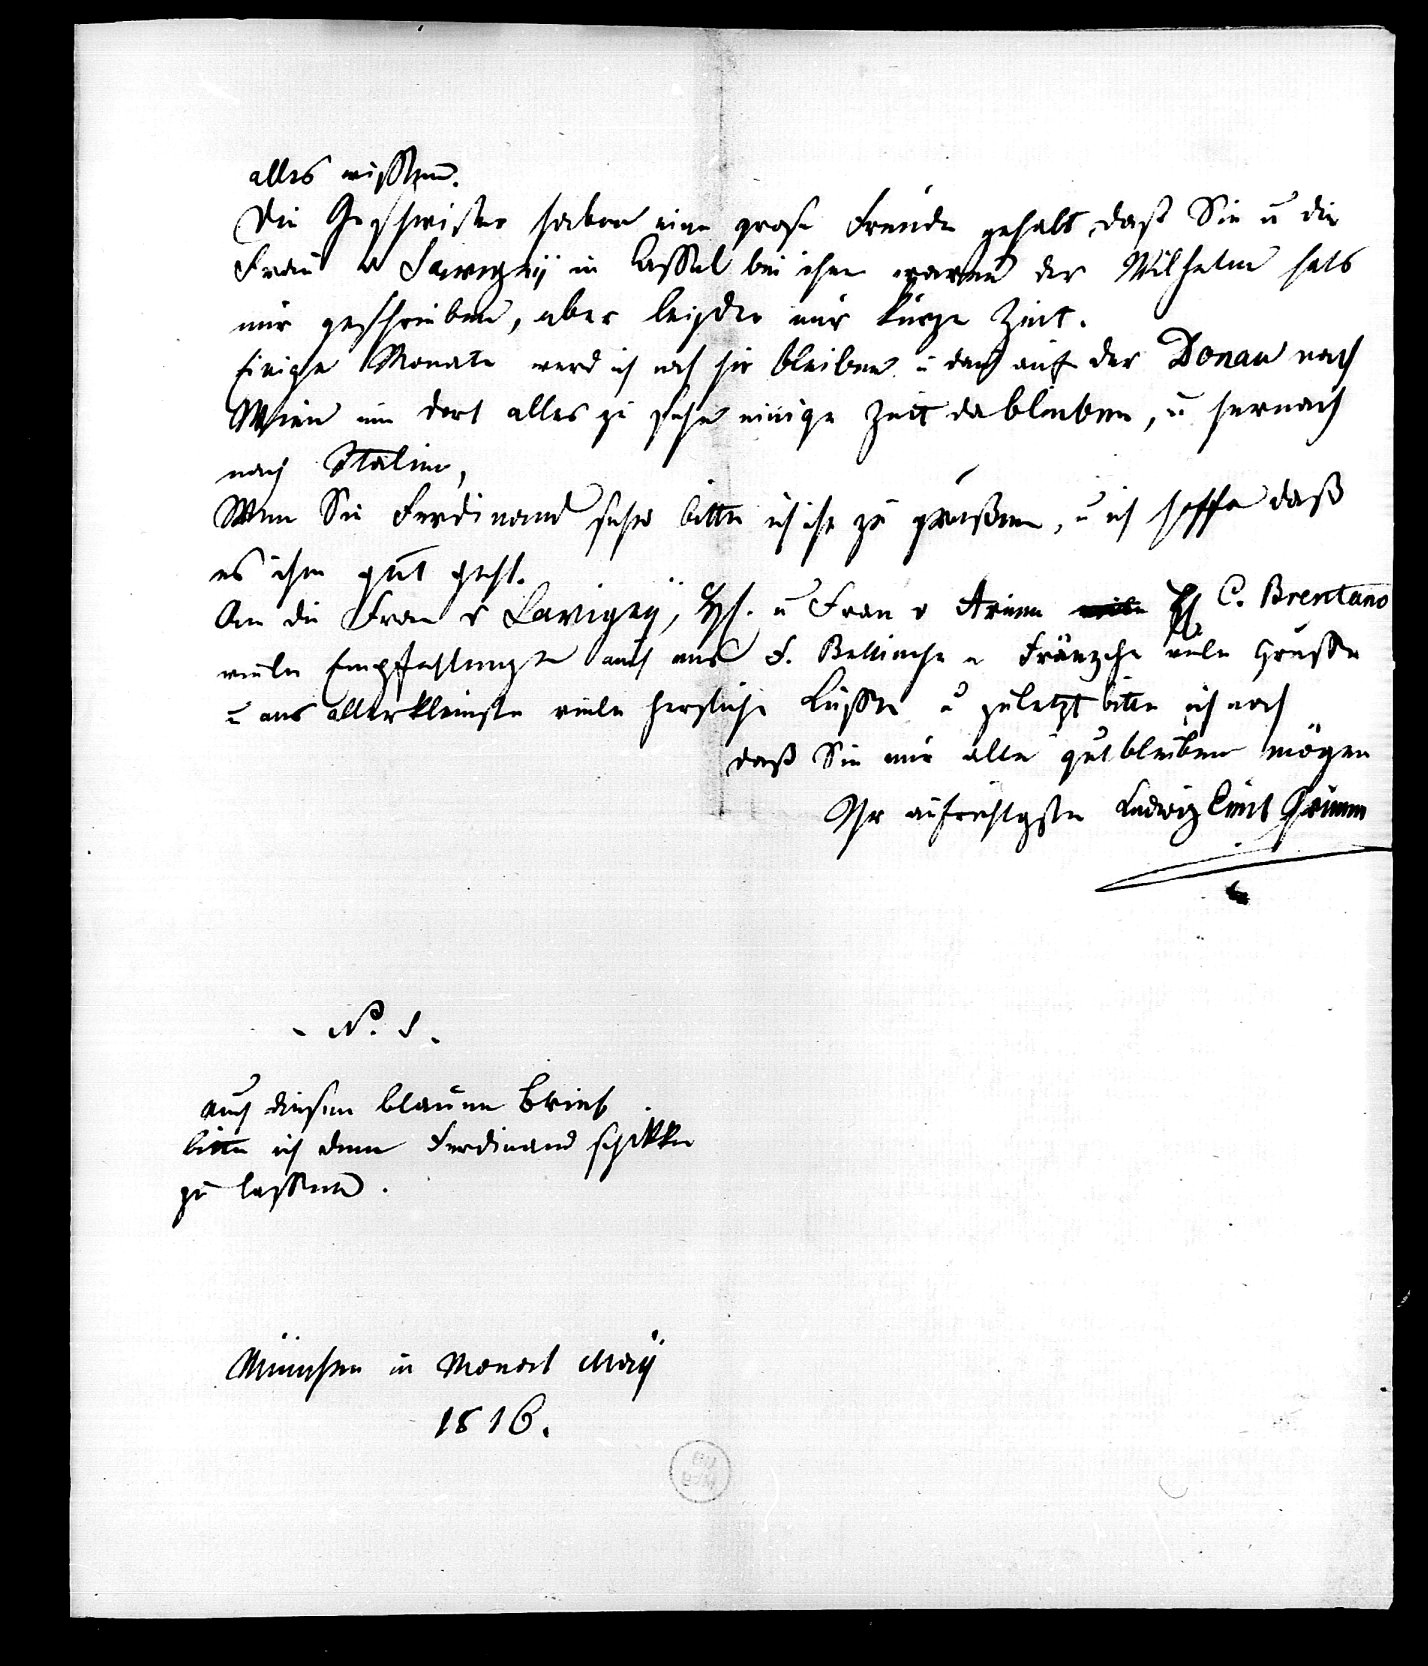 alles wissen.
Die Geschwister haben eine große Freude gehabt daß Sie u die
Frau v Savignÿ in Cassel bei ihne waren der Wilhelm hats
mir geschrieben, aber leider nur kurze Zeit.
Einige Monate werd ich noch hir bleiben u dan auf der Donau nach
Wien um dort alles zu sehn einige Zeit da bleiben, u hernach
nach Italien,
Wen Sie Ferdinand sehn bitte ich ihn zu grüßen, u ich hoffe daß
es ihm gut geht.
An die Frau v Savignÿ, H. u Frau v Arnim viele H C. Brentano
viele Empfehlungen auch ans F. Bettinche u Fränzche viele Grüße
u ans allerkleinste viele herzliche Küsse u zuletzt bitte ich noch
daß Sie mir alle gut bleiben mögen
Ihr aufrichtigster Ludwig Emil Grimm
N. 1.
auch diesen blauen Brief
bitte ich dem Ferdinand schikken
zu lassen.
München in Monat Maÿ
1816.